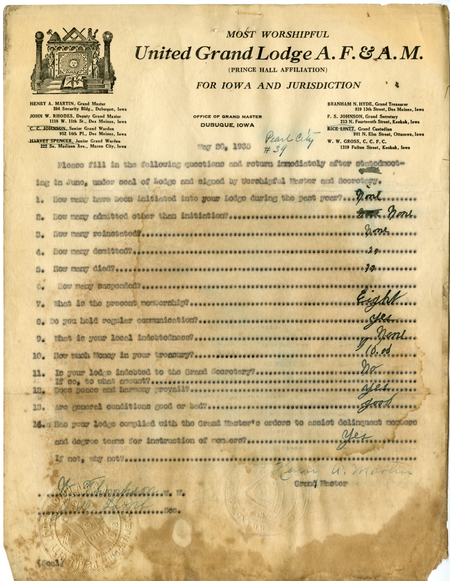 MOST WORSHIPFUL
United Grand Lodge A. F. & A. M.
(PRINCE HALL AFFILIATION)
FOR IOWA AND JURISDICTION
HENRY A. MARTIN, Grand Master
304 Security Bldg., Dubuque, Iowa
JOHN W. RHODES, Deputy Grand Master
1118 W. 11th St., Des Moines, Iowa
C. C. JOHNSON, Senior Grand Warden
952 16th Pl., Des Moines, Iowa
HARVEY SPENCER, Junior Grand Warden
222 So. Madison Ave., Mason City, Iowa
OFFICE OF GRAND MASTER
DUBUQUE, IOWA
BRANHAM N. HYDE, Grand Treasurer
819 13th Street, Des Moines, Iowa
F. S. JOHNSON, Grand Secretary
213 N. Fourteenth Street, Keokuk, Iowa
RICE LENTZ, Grand Custodian
901 N. Elm Street, Ottumwa, Iowa
W. W. GROSS, C. C. F. C.
1319 Fulton Street, Keokuk, Iowa
May 28, 1935
Pearl City
#39
Please fill in the following questions and return immediately after stated meet-
ing in June, under seal of Lodge and signed by Worshipful Master and Secretary.
1. How many have been initiated into your Lodge during the past year? None
2. How many admitted other than initiation? None
3. How many reinstated? None
4. How many demitted?
5. How many died?
6. How many suspended?
7. What is the present membership? Eight
8. Do you hold regular communication? Yes
9. What is your local indebtedness? None
10. How much Money in your treasury? 10.00
11. Is your lodge indebted to the Grand Secretary? No
If so, to what amount?
12. Does peace and harmony prevail? Yes
13. Are general conditions good or bad? Good
14. Has your lodge complied with the Grand Master's orders to assist delinquent members
and degree teams for instruction of members? Yes
If not, why not?
Henry A. Martin
Grand Master
W. M.
Sec.
(Seal)